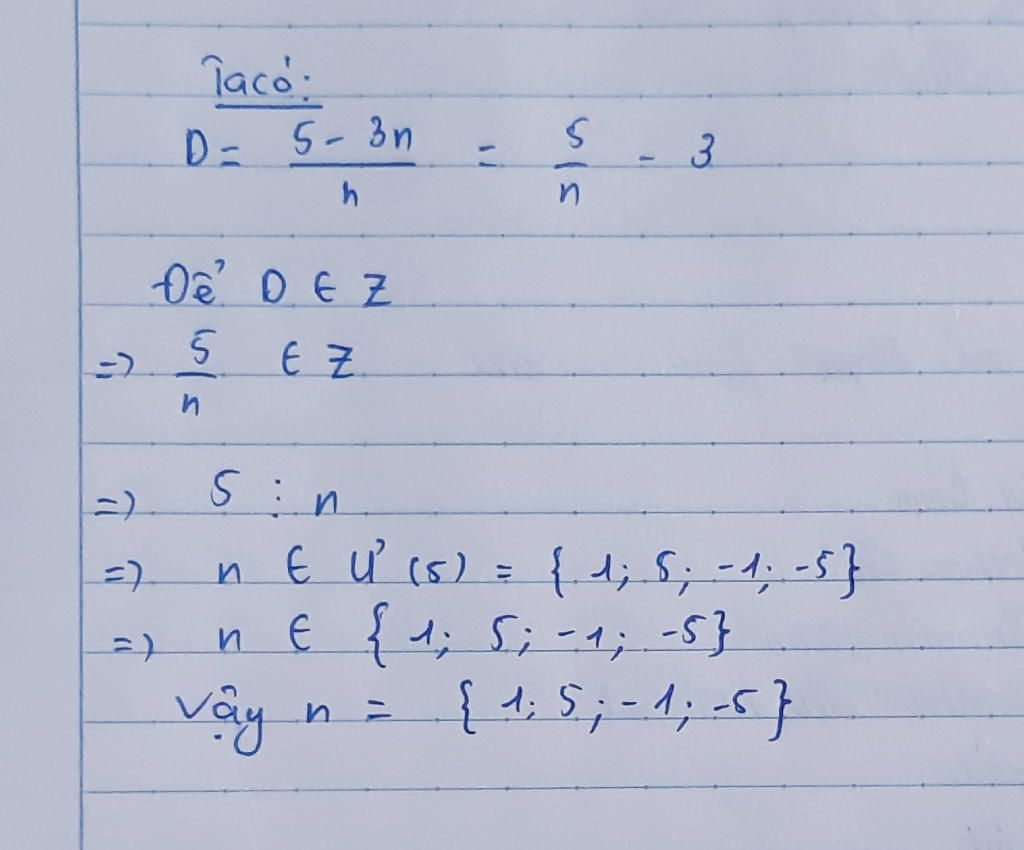 Ta có:
D = \frac{5 - 3n}{n} = \frac{5}{n} - 3
Để D ∈ Z
=> \frac{5}{n} ∈ Z
=> 5 ⋮ n
=> n ∈ Ư(5) = {1; 5; -1; -5}
=> n ∈ {1; 5; -1; -5}
Vậy n = {1; 5; -1; -5}